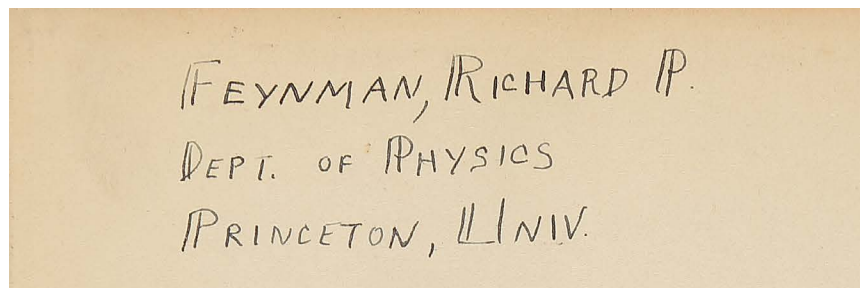 FEYNMAN, RICHARD P.
DEPT. OF PHYSICS
PRINCETON, UNIV.